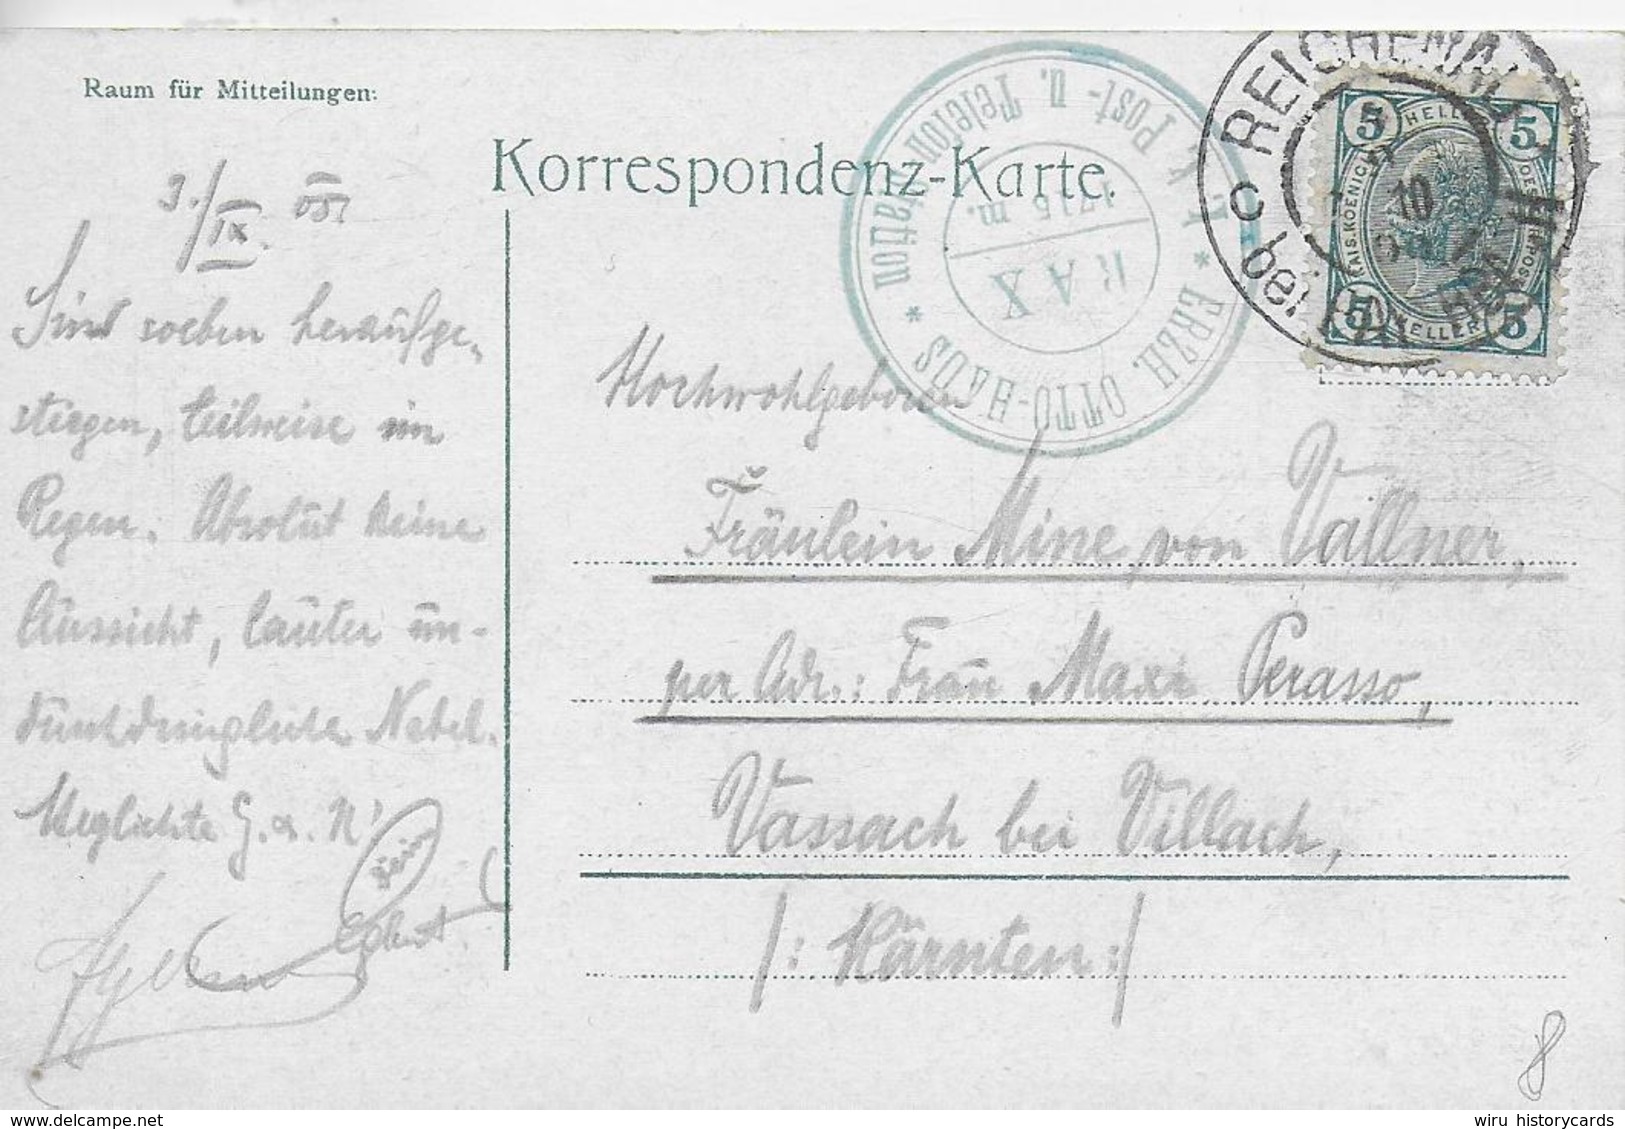 Raum für Mitteilungen:
Korrespondenz-Karte.
3./IX. 05.
Sind soeben heraufge-
stiegen, teilweise im
Regen. Absolut keine
Aussicht, lauter un-
durchdringlicher Nebel.
G. u. N!
Dein
K. K. Post- u. Telefon Station
* ERZH. OTTO-HAUS *
RAX
1715 m.
REICHENAU
bei
c
10
5 HELLER 5
KAIS. KOENIGL.
5 HELLER 5
Hochwohlgeboren
Fräulein Mine von Vallner,
per Adr.: Frau Maxi Perasso,
Vassach bei Villach,
/: Kärnten :/
8
wiru historycards